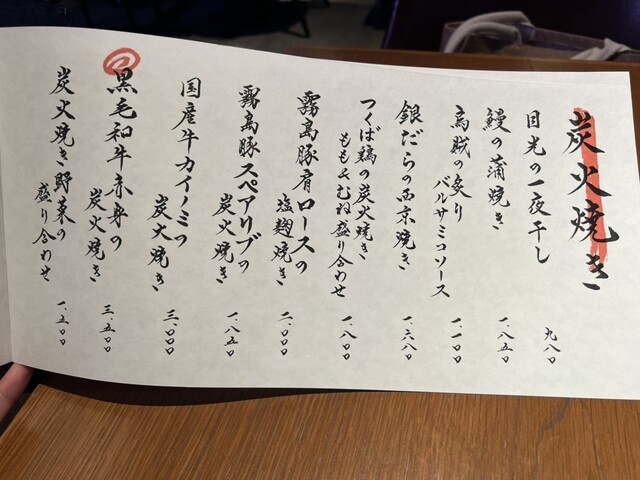 炭火焼き
目光の一夜干し
九八〇
鰻の蒲焼き
一、八五〇
烏賊の炙り
バルサミコソース
一、一〇〇
銀だらの西京焼き
一、六八〇
つくば鶏の炭火焼き
ももとむね盛り合わせ
一、八〇〇
霧島豚肩ロースの
塩麹焼き
二、〇〇〇
霧島豚スペアリブの
炭火焼き
一、八五〇
国産牛カイノミの
炭火焼き
三、〇〇〇
黒毛和牛赤身の
炭火焼き
三、五〇〇
炭火焼き野菜の
盛り合わせ
一、五〇〇